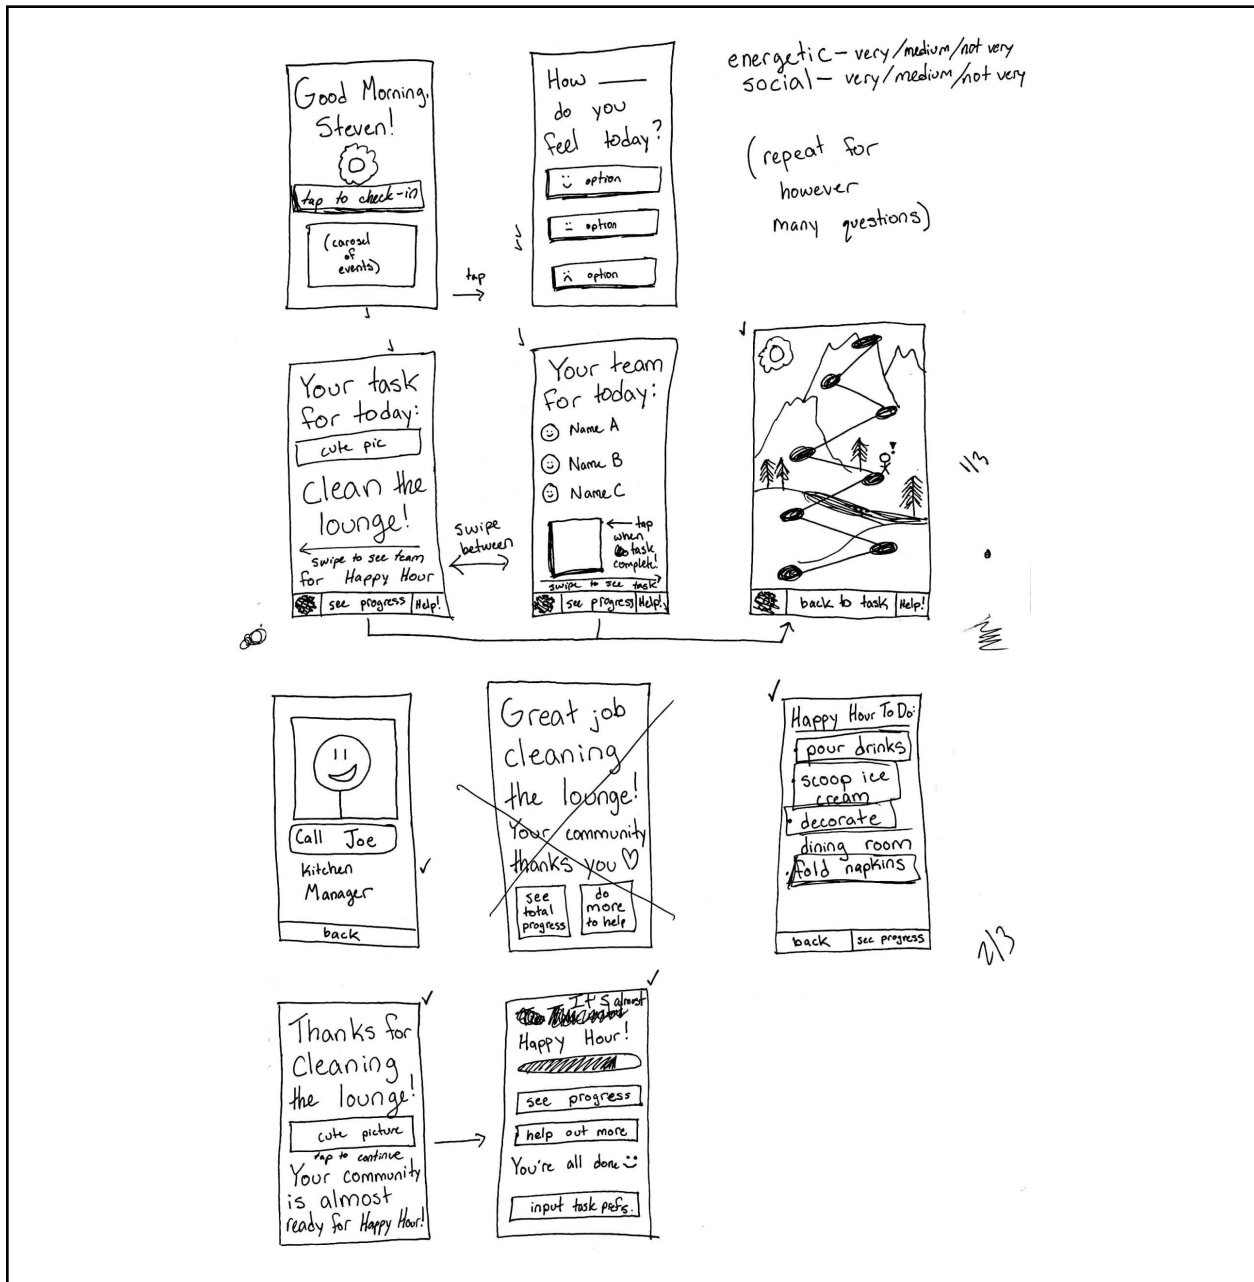 Good Morning,
Steven!
tap to check-in
(carosel
of
events)
tap
How ____
do you
feel today?
option
option
option
energetic - very/medium/not very
social - very/medium/not very
(repeat for
however
many questions)
Your task
for today:
cute pic
Clean the
lounge!
swipe to see team
for Happy Hour
see progress
Help!
swipe
between
Your team
for today:
Name A
Name B
Name C
tap
when
task
complete!
swipe to see task
see progress
Help!
!
back to task
Help!
1/3
Call Joe
Kitchen
Manager
back
Great job
cleaning
the lounge!
Your community
thanks you ♡
see
total
progress
do
more
to help
Happy Hour To Do:
• pour drinks
• scoop ice
cream
• decorate
dining room
• fold napkins
back
see progress
2/3
Thanks for
Cleaning
the lounge!
cute picture
tap to continue
Your community
is almost
ready for Happy Hour!
It's almost
Happy Hour!
see progress
help out more
You're all done
input task prefs.